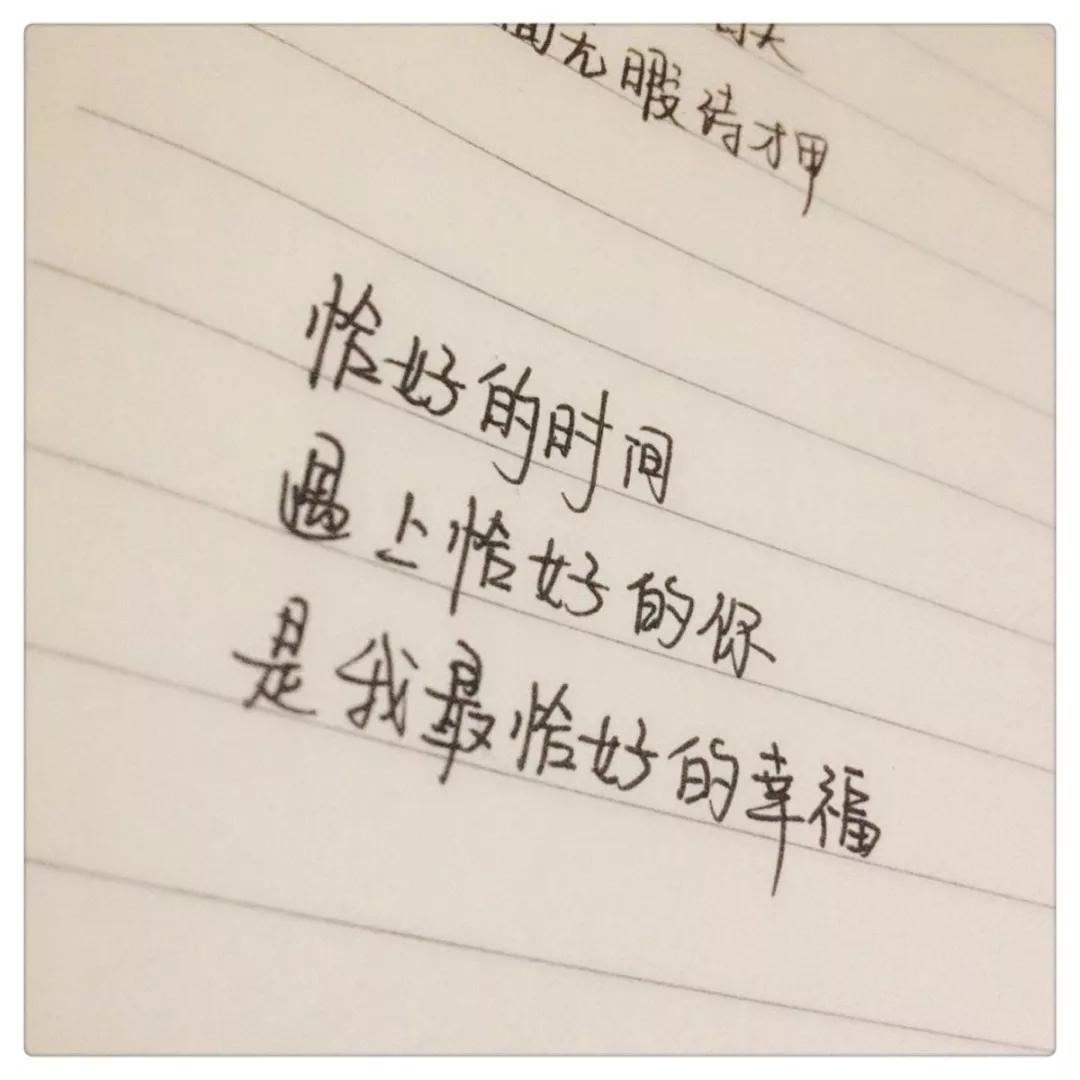 间无暇待押
恰好的时间
遇上恰好的你
是我最恰好的幸福